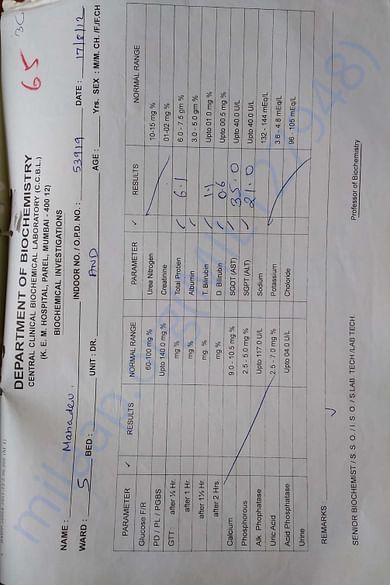 3C
65
DEPARTMENT OF BIOCHEMISTRY
CENTRAL CLINICAL BIOCHEMICAL LABORATORY (C.C.B.L.)
(K. E. M. HOSPITAL, PAREL, MUMBAI - 400 12)
BIOCHEMICAL INVESTIGATIONS
NAME : Mahadev. INDOOR NO. / O.P.D. NO.: 53919 DATE : 17/8/12
WARD : 5 BED : UNIT : DR. AND AGE : Yrs. SEX : M/M. CH. /F/F.CH
PARAMETER ✓ RESULTS NORMAL RANGE PARAMETER ✓ RESULTS NORMAL RANGE
Glucose F/R 60-100 mg % Urea Nitrogen 10-15 mg %
PD / PL / PGBS Upto 140.0 mg % Creatinine 01-02 mg %
GTT : after ½ Hr. mg % Total Protien ✓ 6.1 6.0 - 7.5 gm %
after 1 Hr. mg % Albumin ✓ 3.0 - 5.0 gm %
after 1½ Hr. mg % T. Bilirubin ✓ 1.1 Upto 01.0 mg %
after 2 Hrs. mg % D. Bilirubin ✓ 0.6 Upto 00.5 mg %
Calcium 9.0 - 10.5 mg % SGOT (AST) ✓ 35.0 Upto 40.0 U/L
Phosphorous 2.5 - 5.0 mg % SGPT (ALT) ✓ 21.0 Upto 40.0 U/L
Alk. Phophatase Upto 117.0 U/L Sodium 132 - 144 mEq/L
Uric Acid 2.5 - 7.0 mg % Potassium 3.6 - 4.8 mEq/L
Acid Phosphatase Upto 04.0 U/L Choloride 96 - 106 mEq/L
Urine
REMARKS
SENIOR BIOCHEMIST / S. S. O. / I. S. O. / S.LAB. TECH./LAB TECH. Professor of Biochemistry